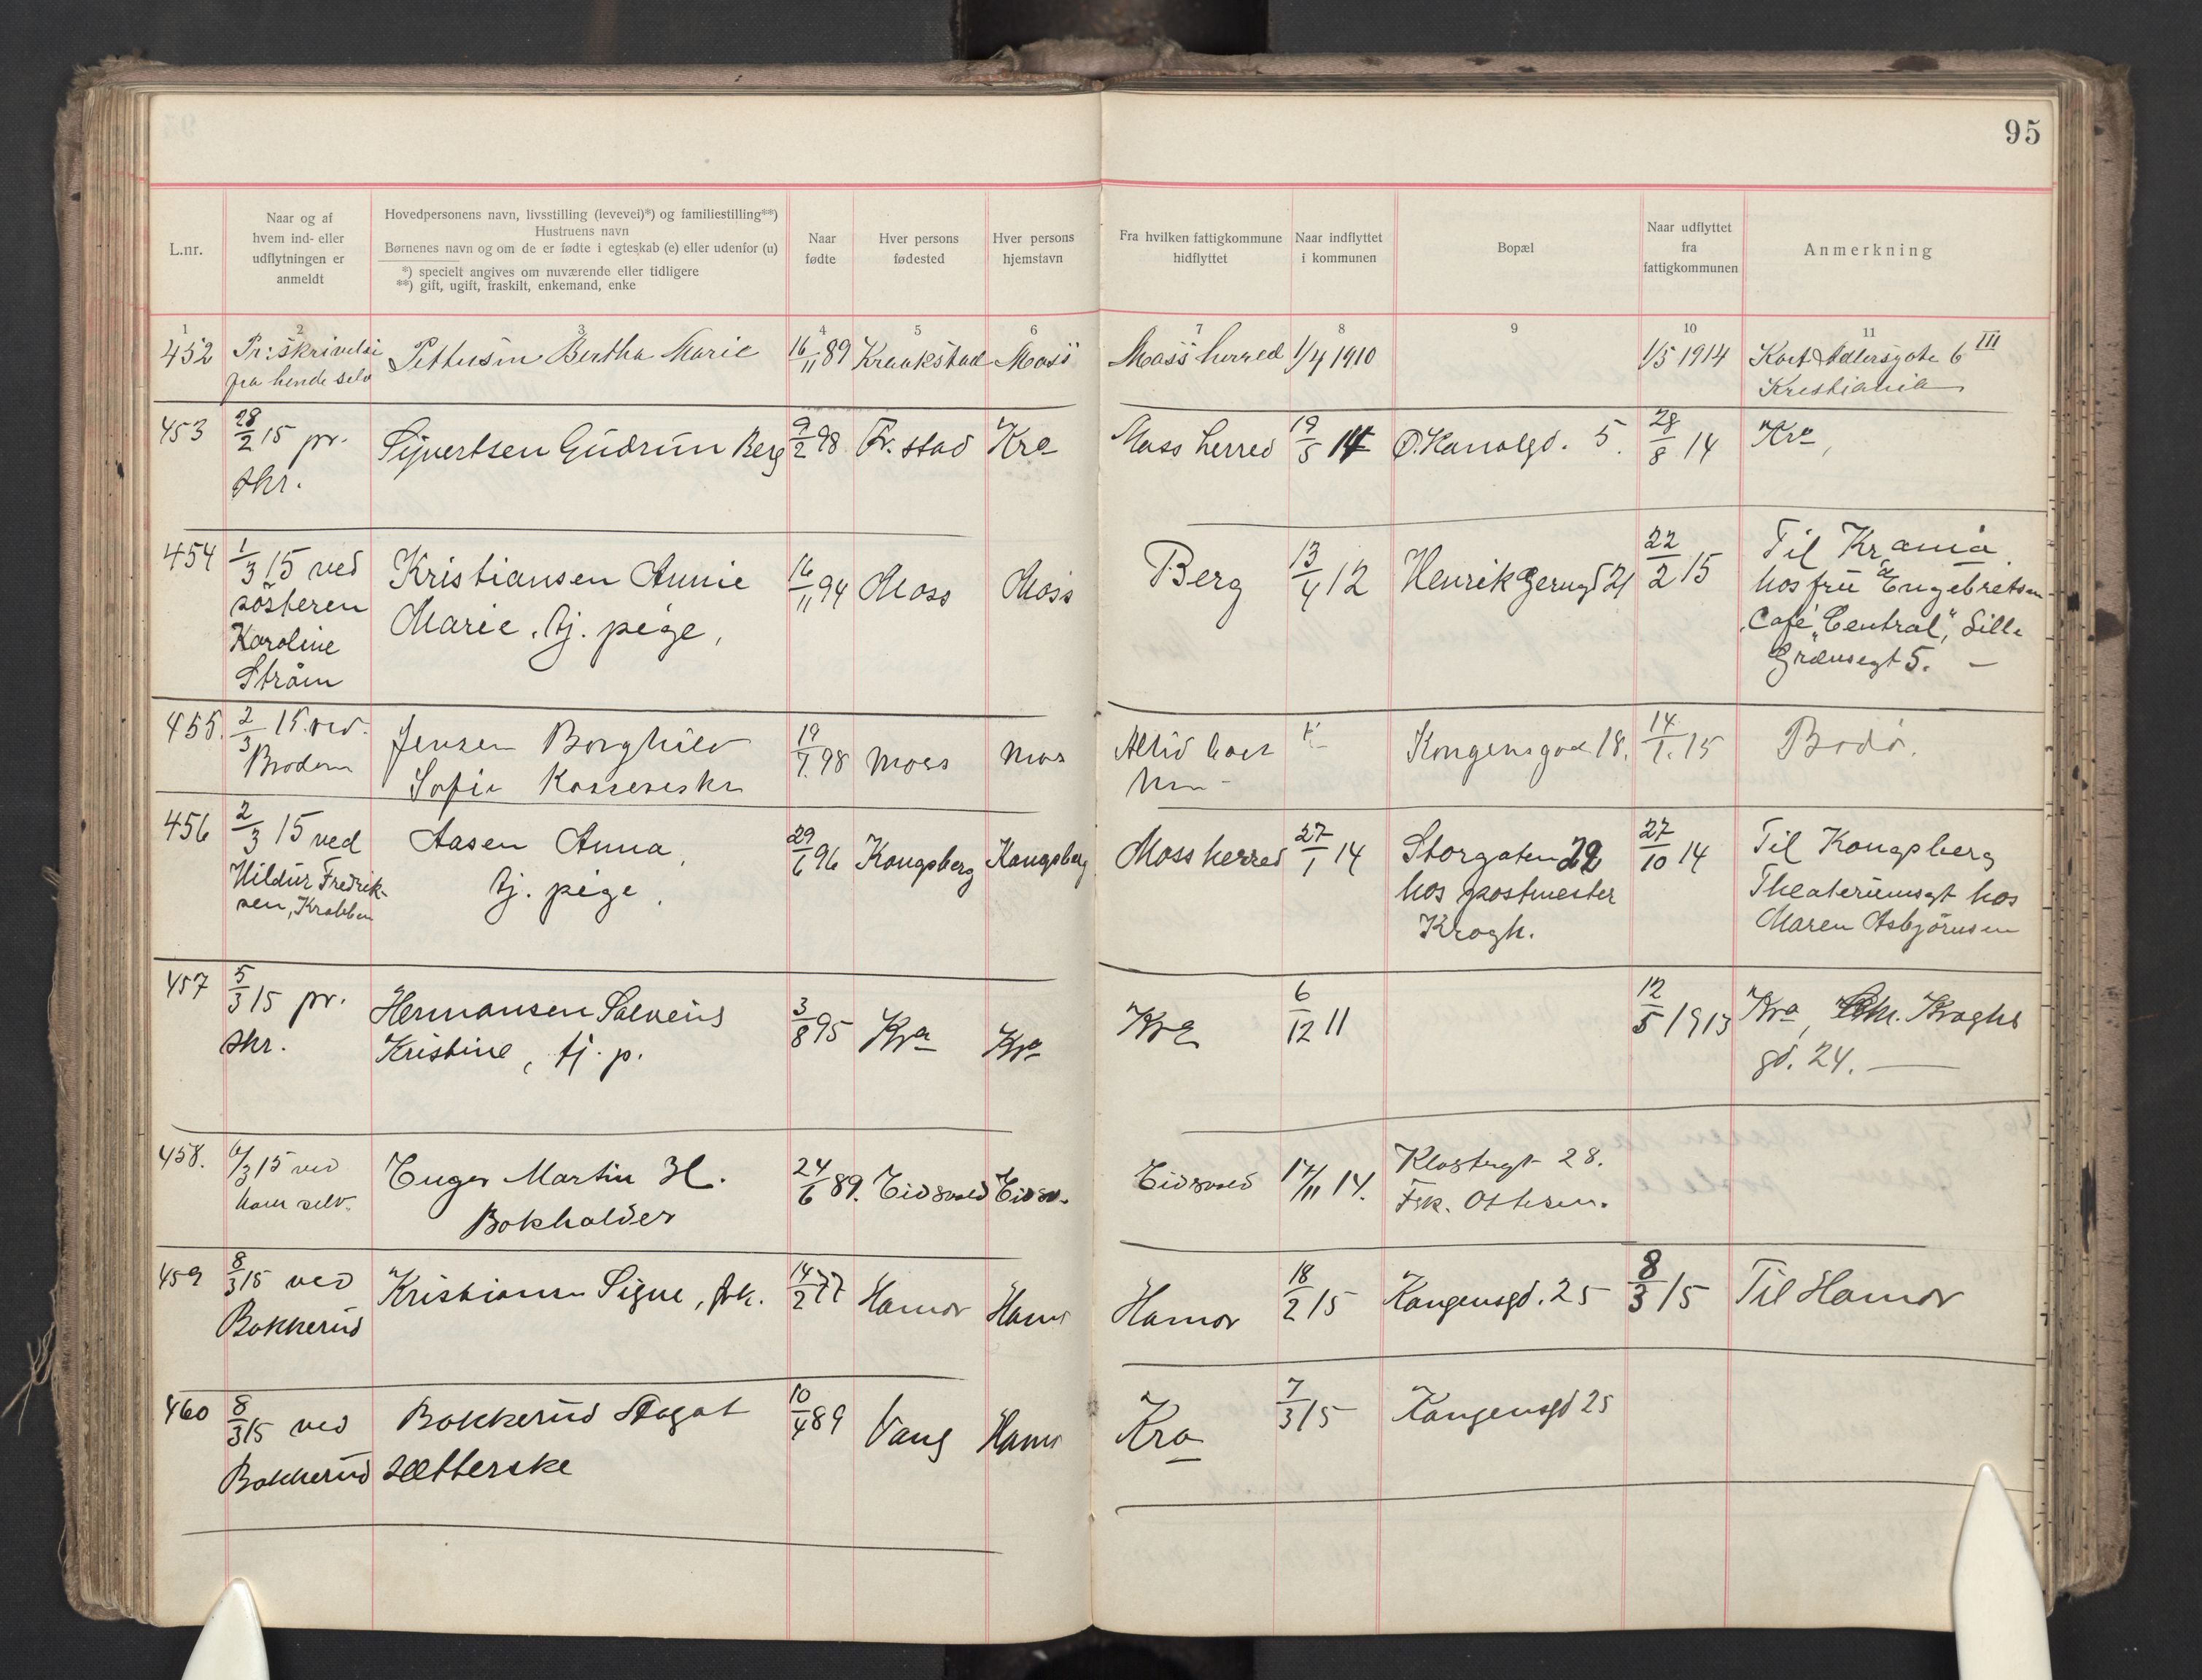 95
L.nr.
Naar og af
hvem ind- eller
udflytningen er
anmeldt
Hovedpersonens navn, livsstilling (levevei)*) og familiestilling**)
Hustruens navn
Børnenes navn og om de er fødte i egteskab (e) eller udenfor (u)
*) specielt angives om nuværende eller tidligere
**) gift, ugift, fraskilt, enkemand, enke
Naar
fødte
Hver persons
fødested
Hver persons
hjemstavn
Fra hvilken fattigkommune
hidflyttet
Naar indflyttet
i kommunen
Bopæl
Naar udflyttet
fra
fattigkommunen
Anmerkning
1 2 3 4 5 6 7 8 9 10 11
452 Pr: skrivelse Pettersen Bertha Marie 16/11 89 Kraakstad Moss Moss herred 1/4 1910 1/5 1914 Kort Adlersgate 6 III
fra hende selv Kristiania
453 28/2 15 pr. Sijvertsen Gudrun Berg 9/2 98 Fr. stad Kra Moss herred 19/5 14 Ø. Kanalgd. 5. 28/8 14 Kra,
skr.
454 1/3 15 ved Kristiansen Annie 16/11 94 Moss Moss Berg 13/4 12 Henrik Gerngd 21 22/2 15 Til Krania
søsteren Marie, tj. pige, hos fru Engebretsen
Karoline Café "Central", Lille
Strøm Grænsegt 5. —
455. 2/3 15. ved. Jensen Borghild 19/1. 98 Moss Mos Altid boet Kongensgad 18. 14/1. 15 Bodø.
Brodern Sofie
456 2/3 15 ved Aasen Anna, 29/6 96 Kongsberg Kongsberg Moss herred 27/1 14 Storgaten 22 27/10 14 Til Kongsberg
Hildur Fredrik- tj. pige. hos postmester hos
sen, Krabben Krogh. Maren Asbjørnsen
457 5/3 15 pr. Hermansen Solveig 3/8 95 Kra Kra Kra 6/12 11 12/5 1913 Kra, Kroghs
skr. Kristine, tj. p. gd. 24. —
458. 6/3 15 ved Enger Martin H. 24/6 89. Eidsvold Eidsv. Eidsvold 17/11 14. Klostergt 28.
ham selv. Bokholder Frk. Ottesen.
459 8/3 15 ved Kristiansen Signe, frk. 14/2 77 Hamar Hamr Hamar 18/2 15 Kongensgd. 25 8/3 15 Til Hamar
Bakkerud
460 8/3 15 ved Bakkerud Dagot 10/4 89 Vang Hamr Kra 7/3 15 Kongensgd 25
Bakkerud sætterske